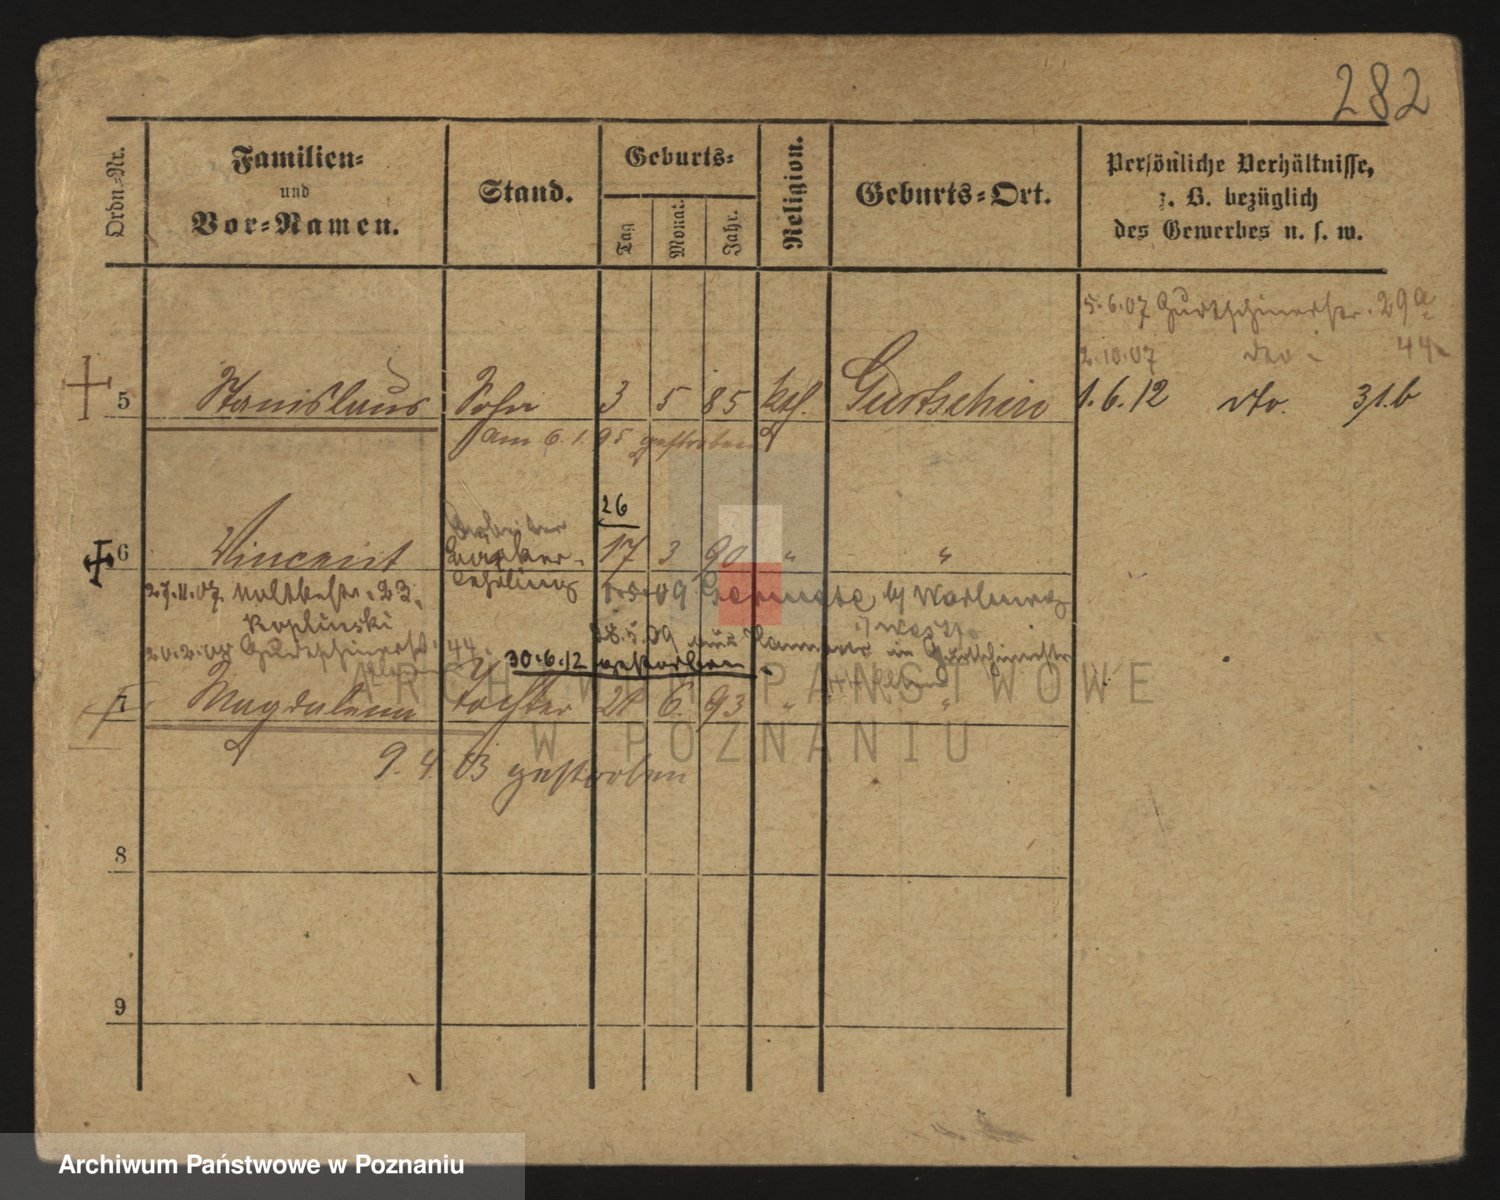 282
Ordn.-Nr.
Familien-
und
Vor-Namen.
Stand.
Geburts-
Tag
Monat.
Jahr.
Religion.
Geburts-Ort.
Persönliche Verhältnisse,
z. B. bezüglich
des Gewerbes u. s. w.
5.6.07 Gurtschinerstr. 29a
2.10.07 dto 44
5 Stanislaus Sohn 3 5 85 kath. Gurtschin 1.6.12 dto. 31b
am 6.1.95 gestorben
26
Arbeiter
6 Vincent 17 3 90 " "
lehrling
27.11.07. 23.
Koplinski
1.5.09 by Warburg
20.2.08 Gurtschinerstr. 44.
28.5.09 aus Hannover in Gurtschinerstr
30.6.12 gestorben.
7 Magdalena Tochter 21 6. 93 " "
9. 4. 03 gestorben
8
9
ARCHIWUM PAŃSTWOWE
W POZNANIU
Archiwum Państwowe w Poznaniu